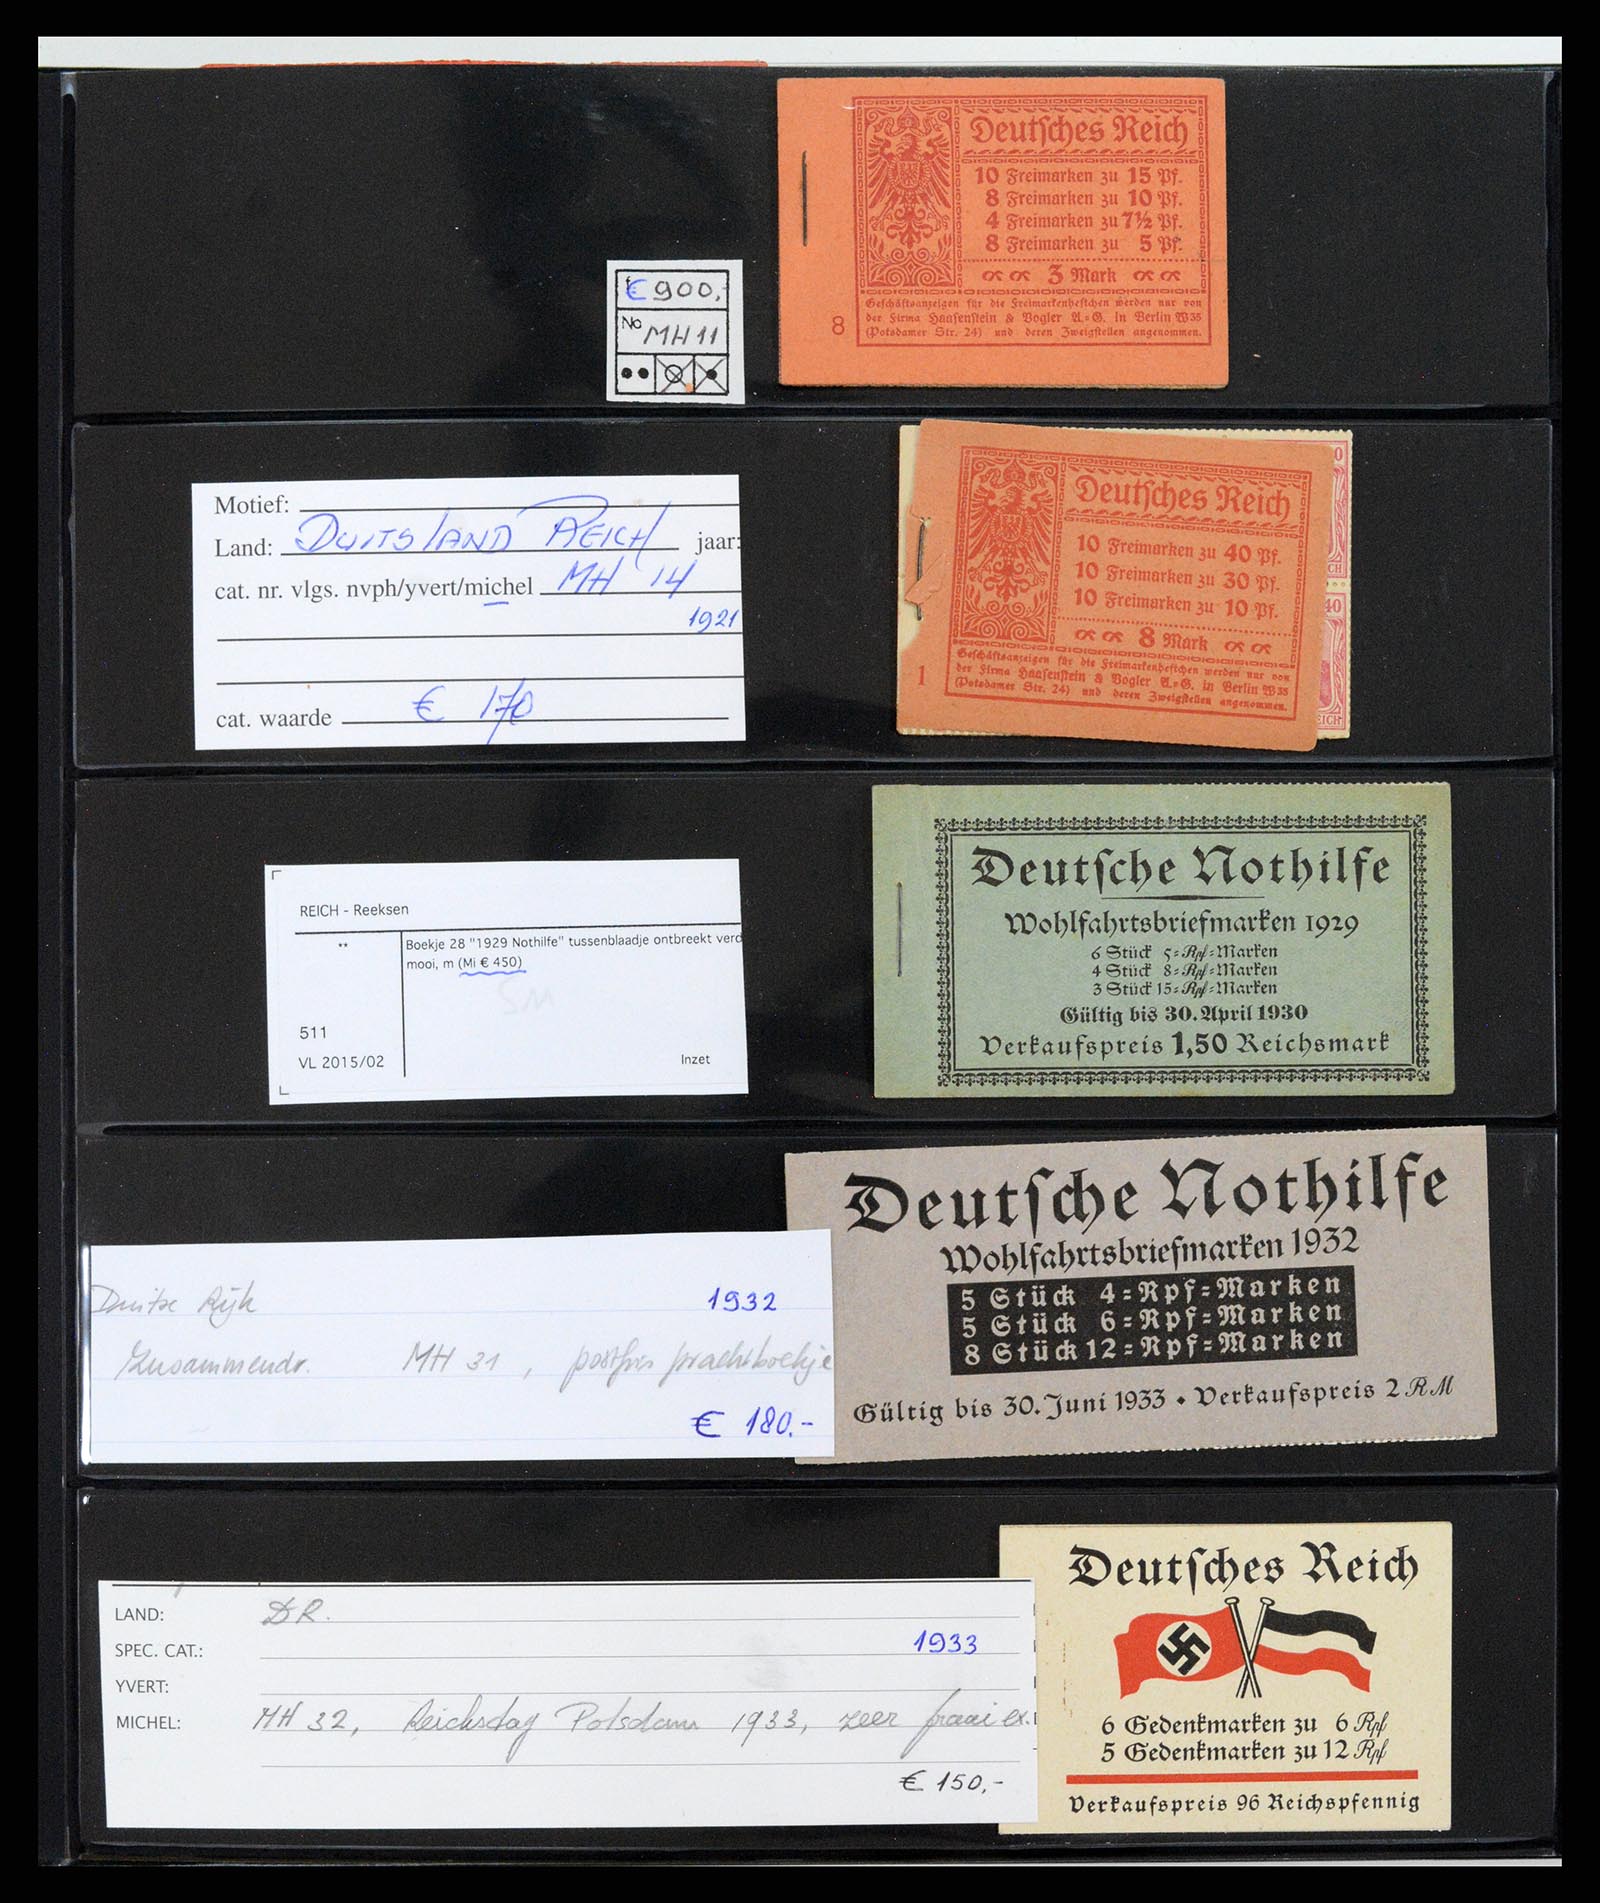 Deutsches Reich
10 Freimarken zu 15 Pf.
8 Freimarken zu 10 Pf.
4 Freimarken zu 7½ Pf.
8 Freimarken zu 5 Pf.
3 Mark
Geschäftsanzeigen für die Freimarkenheftchen werden nur von
der Firma Haasenstein & Vogler A.=G. in Berlin W35
(Potsdamer Str. 24) und deren Zweigstellen angenommen.
8
€ 900,-
No
MH 11
Motief:
Land: DUITSLAND REICH jaar:
cat. nr. vlgs. nvph/yvert/michel MH 14
1921
cat. waarde € 170
Deutsches Reich
10 Freimarken zu 40 Pf.
10 Freimarken zu 30 Pf.
10 Freimarken zu 10 Pf.
8 Mark
Geschäftsanzeigen für die Freimarkenheftchen werden nur von
der Firma Haasenstein & Vogler A.=G. in Berlin W35
(Potsdamer Str. 24) und deren Zweigstellen angenommen.
1
40
REICH - Reeksen
**
Boekje 28 "1929 Nothilfe" tussenblaadje ontbreekt verd
mooi, m (Mi € 450)
511
VL 2015/02
Inzet
Deutsche Nothilfe
Wohlfahrtsbriefmarken 1929
6 Stück 5=Rpf=Marken
4 Stück 8=Rpf=Marken
3 Stück 15=Rpf=Marken
Gültig bis 30. April 1930
Verkaufspreis 1,50 Reichsmark
Duitse Rijk 1932
Zusammendr. MH 31, postfris prachtboekje
€ 180.-
Deutsche Nothilfe
Wohlfahrtsbriefmarken 1932
5 Stück 4=Rpf=Marken
5 Stück 6=Rpf=Marken
8 Stück 12=Rpf=Marken
Gültig bis 30. Juni 1933 • Verkaufspreis 2 RM
LAND: DR.
SPEC. CAT.: 1933
YVERT:
MICHEL: MH 32, Reichsdag Potsdam 1933, zeer fraai ex.
€ 150,-
Deutsches Reich
6 Gedenkmarken zu 6 Rpf
5 Gedenkmarken zu 12 Rpf
Verkaufspreis 96 Reichspfennig